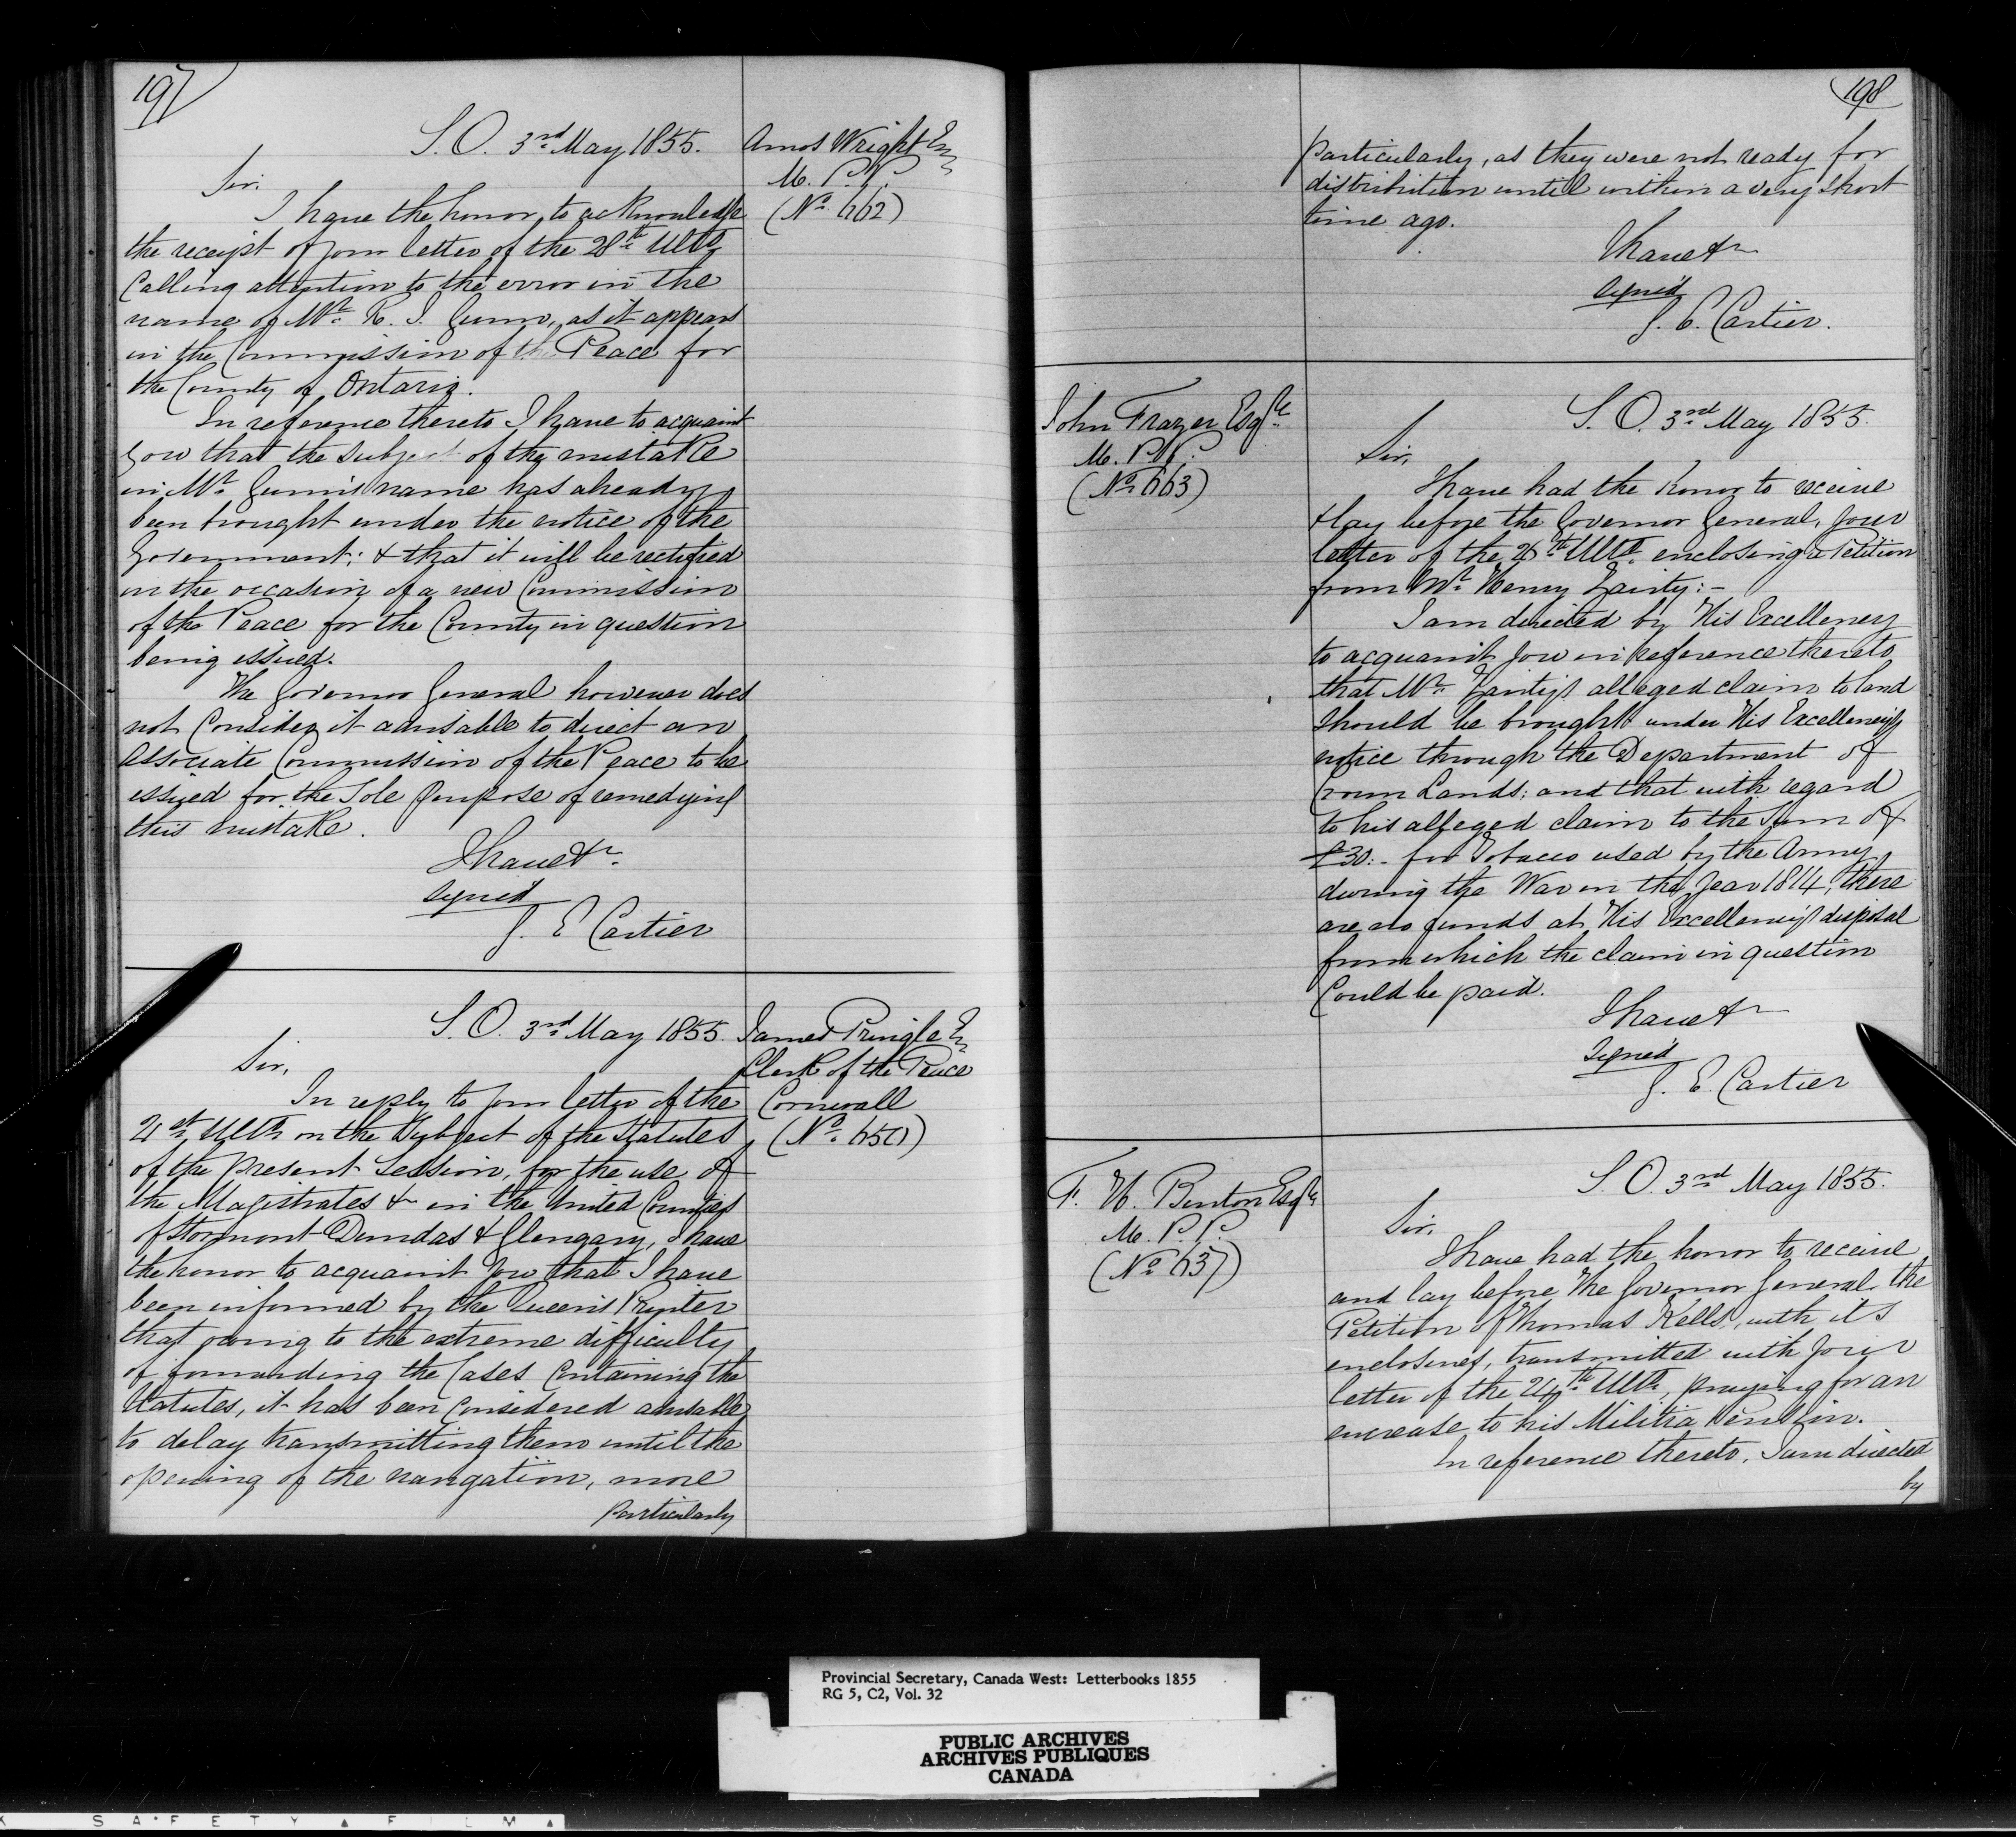 197
S. O. 3rd May 1855.
Amos Wright Esq
M. P. P.
(No. 662)
Sir,
I have the honor, to acknowledge
the receipt of your letter of the 28th Ulto,
Calling attention to the error in the
name of Mr. R. J. Gunn, as it appears
in the Commission of the Peace for
the County of Ontario.
In reference thereto I have to acquaint
you that the subject of the mistake
in Mr. Gunn's name has already
been brought under the notice of the
Government; & that it will be rectified
on the occasion of a new Commission
of the Peace for the County in question
being issued.
The Governor General however does
not Consider it advisable to direct an
Associate Commission of the Peace to be
issued for the Sole purpose of remedying
this mistake.
I have &c.
Signed
G. E Cartier
S. O. 3rd May 1855.
James Pringle Esq
Clerk of the Peace
Cornwall
(No. 650)
Sir,
In reply to your letter of the
21st Ulto. on the Subject of the Statutes
of the present Session, for the use of
the Magistrates &c in the United Counties
of Stormont Dundas & Glengary, I have
the honor to acquaint you that I have
been informed by the Queen's Printer
that owing to the extreme difficulty
of forwarding the Cases Containing the
Statutes, it has been Considered advisable
to delay transmitting them until the
opening of the navigation, more
particularly
198
particularly, as they were not ready for
distribution until within a very short
time ago.
I have &c
Signed
G. E. Cartier.
John Frazer Esqre
M. P. P.
(No. 663)
S. O. 3rd May 1855.
Sir,
I have had the honor to receive
& lay before the Governor General, your
letter of the 26th Ulto. enclosing a Petition
from Mr. Henry :-
I am directed by His Excellency
to acquaint you in reference thereto
that Mr. alleged claim to land
should be brought under His Excellency's
notice through the Department of
Crown Lands; and that with regard
to his alleged claim to the Sum of
£30.- for Tobacco used by the Army
during the War in the year 1814, there
are no funds at His Excellency's disposal
from which the claim in question
Could be paid.
I have &c
Signed
G. E. Cartier
F. H. Burton Esqre
M. P. P.
(No. 637)
S. O. 3rd May 1855.
Sir,
I have had the honor to receive
and lay before the Governor General the
Petition of Thomas Kells, with its
enclosures, transmitted with your
letter of the 24th Ulto, praying for an
increase to his Militia Pension.
In reference thereto, I am directed
by
Provincial Secretary, Canada West: Letterbooks 1855
RG 5, C2, Vol. 32
PUBLIC ARCHIVES
ARCHIVES PUBLIQUES
CANADA
SAFETY FILM